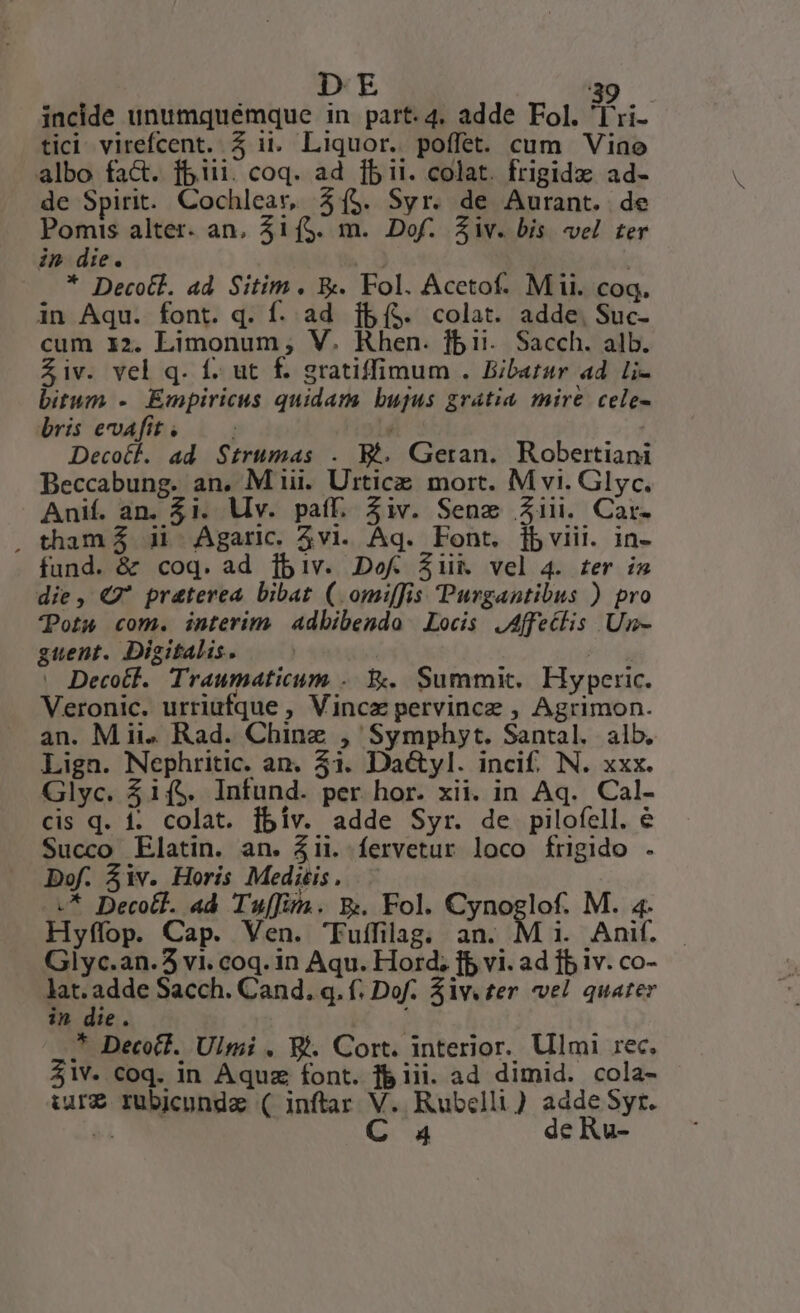 DE 39
incide unumquémque in part. 4. adde Fol. Tri-
tici virefcent. ℥ ii. Liquor. poffet. cum Vino
albo fact. ℔iii. coq. ad ℔ii. colat. frigidæ ad-
de Spirit. Cochlear, ℥ß. Syr. de Aurant. de
Pomis alter. an. ℥iß. m. Dof. ℥iv. bis vel ter
in die.
* Decoct. ad Sitim. ℞. Fol. Acetof. M ii. coq.
in Aqu. font. q. f. ad ℔ß. colat. adde, Suc-
cum 12. Limonum, V. Rhen. ℔ii. Sacch. alb.
℥iv. vel q. f. ut f. gratiffimum. Bibatur ad li-
bitum - Empiricus quidam hujus gratia mire cele-
bris evafit.
Decoct. ad Strumas. ℞. Geran. Robertiani
Beccabung. an. M iii. Urticæ mort. M vi. Glyc.
Anif. an. ℥i. Uv. paff. ℥iv. Senæ ℥iii. Car-
tham ℥ ii Agaric. ʒvi. Aq. Font. ℔viii. in-
fund. & coq. ad ℔iv. Dof. ℥iii. vel 4. ter in
die, & præterea bibat ( omiffis Purgantibus ) pro
Potu com. interim adhibendo Locis Affectis Un-
guent. Digitalis.
Decoct. Traumaticum. ℞. Summit. Hyperic.
Veronic. utriufque, Vincæ pervincæ, Agrimon.
an. M ii. Rad. Chinæ, Symphyt. Santal. alb.
Lign. Nephritic. an. ℥i. Dactyl. incif. N. xxx.
Glyc. ℥iß. Infund. per hor. xii. in Aq. Cal-
cis q. f. colat. ℔iv. adde Syr. de pilofell. é
Succo Elatin. an. ℥ii. fervetur loco frigido -
Dof. ℥iv. Horis Medicis.
* Decoct. ad Tuffim. ℞. Fol. Cynoglof. M. 4.
Hyffop. Cap. Ven. Tuffilag. an. M i. Anif.
Glyc. an. ʒ vi. coq. in Aqu. Hord. ℔ vi. ad ℔ iv. co-
lat. adde Sacch. Cand. q. f. Dof. ℥iv. ter vel quater
in die.
* Decoct. Ulmi. ℞. Cort. interior. Ulmi rec.
℥iv. coq. in Aquæ font. ℔iii. ad dimid. cola-
turæ rubicundæ ( inftar V. Rubelli ) adde Syr.
C 4 de Ru-